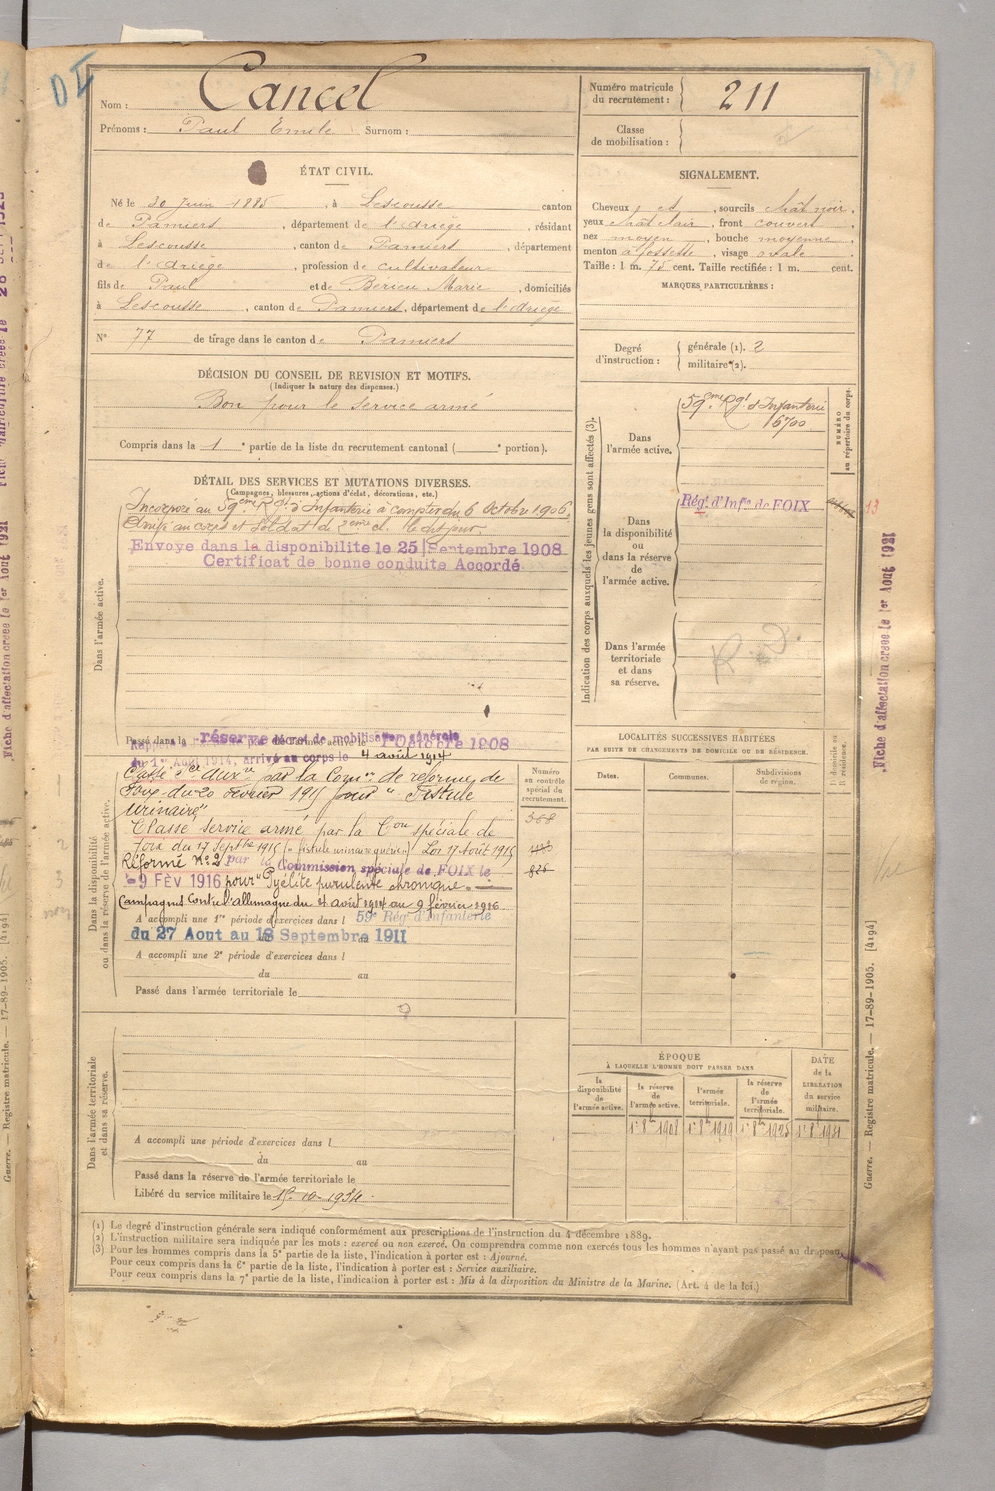 Nom : Cancel
Prénoms : Paul Emile Surnom :
ÉTAT CIVIL.
Né le 30 Juin 1885, à Lescousse canton
de Pamiers, département de l'Ariège, résidant
à Lescousse, canton de Pamiers, département
de l'Ariège, profession de cultivateur
fils de Paul et de Berieu Marie, domiciliés
à Lescousse, canton de Pamiers, département de l'Ariège
N° 77 de tirage dans le canton de Pamiers
DÉCISION DU CONSEIL DE REVISION ET MOTIFS.
(Indiquer la nature des dispenses.)
Bon pour le service armé
Compris dans la 1e partie de la liste du recrutement cantonal ( e portion).
DÉTAIL DES SERVICES ET MUTATIONS DIVERSES.
(Campagnes, blessures, actions d'éclat, décorations, etc.)
Dans l'armée active.
Incorporé au 59eme Rgt d'Infanterie à compter du 6 Octobre 1906,
Arrivé au corps et Soldat de 2eme cl. le dit jour
Envoye dans la disponibilite le 25 Septembre 1908
Certificat de bonne conduite Accordé
Dans la disponibilité
ou dans la réserve de l'armée active.
Passé dans la réserve de l'armée active le 1 Octobre 1908
Rappelé décret de mobilisation générale
du 1er Août 1914, arrivé au corps le 4 août 1914
Classé Ser auxre par la Comon de réforme de
Foix du 20 février 1915 pour "Fistule
urinaire"
Classé service armé par la Con spéciale de
Foix du 17 Septbre 1915 Loi 17 Août 1915
Réformé N° 2 par la Commission spéciale de FOIX le
-9 FÉV 1916 pour "Pyélite purulente chronique.
Campagne contre l'allemagne du 4 août 1914 au 9 février 1916
A accompli une 1re période d'exercices dans l 59e Régt d'Infanterie
du 27 Aout au 18 Septembre 1911
A accompli une 2e période d'exercices dans l
du au
Passé dans l'armée territoriale le
Dans l'armée territoriale
et dans sa réserve.
A accompli une période d'exercices dans l
du au
Passé dans la réserve de l'armée territoriale le
Libéré du service militaire le 15-10-1934
Numéro
au contrôle
spécial du
recrutement.
568
826
Numéro matricule
du recrutement : 211
Classe
de mobilisation :
SIGNALEMENT.
Cheveux et, sourcils chât noir,
yeux chât clair, front couvert
nez moyen, bouche moyenne,
menton à fossette, visage ovale
Taille : 1 m. 75 cent. Taille rectifiée : 1 m. cent.
MARQUES PARTICULIÈRES :
Degré
d'instruction :
générale (1). 2
militaire (2).
Indication des corps auxquels les jeunes gens sont affectés (3).
NUMÉRO
au répertoire du corps.
Dans
l'armée active.
59eme Rgt d'Infanterie
16700
Dans
la disponibilité
ou dans
la réserve
de
l'armée active.
Régt d'Infie de FOIX
13
Dans l'armée
territoriale
et dans
sa réserve.
LOCALITÉS SUCCESSIVES HABITÉES
PAR SUITE DE CHANGEMENTS DE DOMICILE OU DE RÉSIDENCE.
Dates. Communes. Subdivisions
de région.
D domicile ou
R résidence.
ÉPOQUE
À LAQUELLE L'HOMME DOIT PASSER DANS
DATE
de la
LIBÉRATION
du service
militaire.
la
disponibilité
de
l'armée active.
la réserve
de
l'armée active.
l'armée
territoriale.
la réserve
de l'armée
territoriale.
1er 8bre 1908 1er 8bre 1919 1er 8bre 1925 1er 8bre 1931
(1) Le degré d'instruction générale sera indiqué conformément aux prescriptions de l'instruction du 4 décembre 1889.
(2) L'instruction militaire sera indiquée par les mots : exercé ou non exercé. On comprendra comme non exercés tous les hommes n'ayant pas passé au drapeau.
(3) Pour les hommes compris dans la 5e partie de la liste, l'indication à porter est : Ajourné.
Pour ceux compris dans la 6e partie de la liste, l'indication à porter est : Service auxiliaire.
Pour ceux compris dans la 7e partie de la liste, l'indication à porter est : Mis à la disposition du Ministre de la Marine. (Art. 4 de la loi.)
Fiche d'affectation créée le 1er Aout 1921
Guerre. — Registre matricule. — 17-89-1905. [4194]
Fiche d'affectation créée le 1er Aout 1921
Guerre. — Registre matricule. — 17-89-1905. [4194]